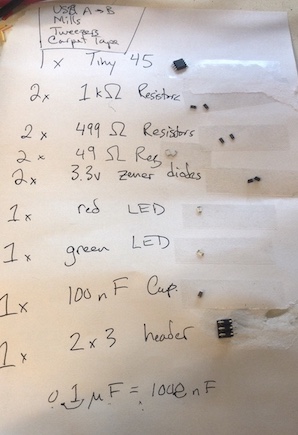 USB A → B
Mills
Tweezers
Carpet Tape
1x Tiny 45
2x 1kΩ Resistors
2x 499 Ω Resistors
2x 49 Ω Res
2x 3.3v zener diodes
1x red LED
1x green LED
1x 100nF Cap.
1x 2x3 header
0.1 μF = 100 nF